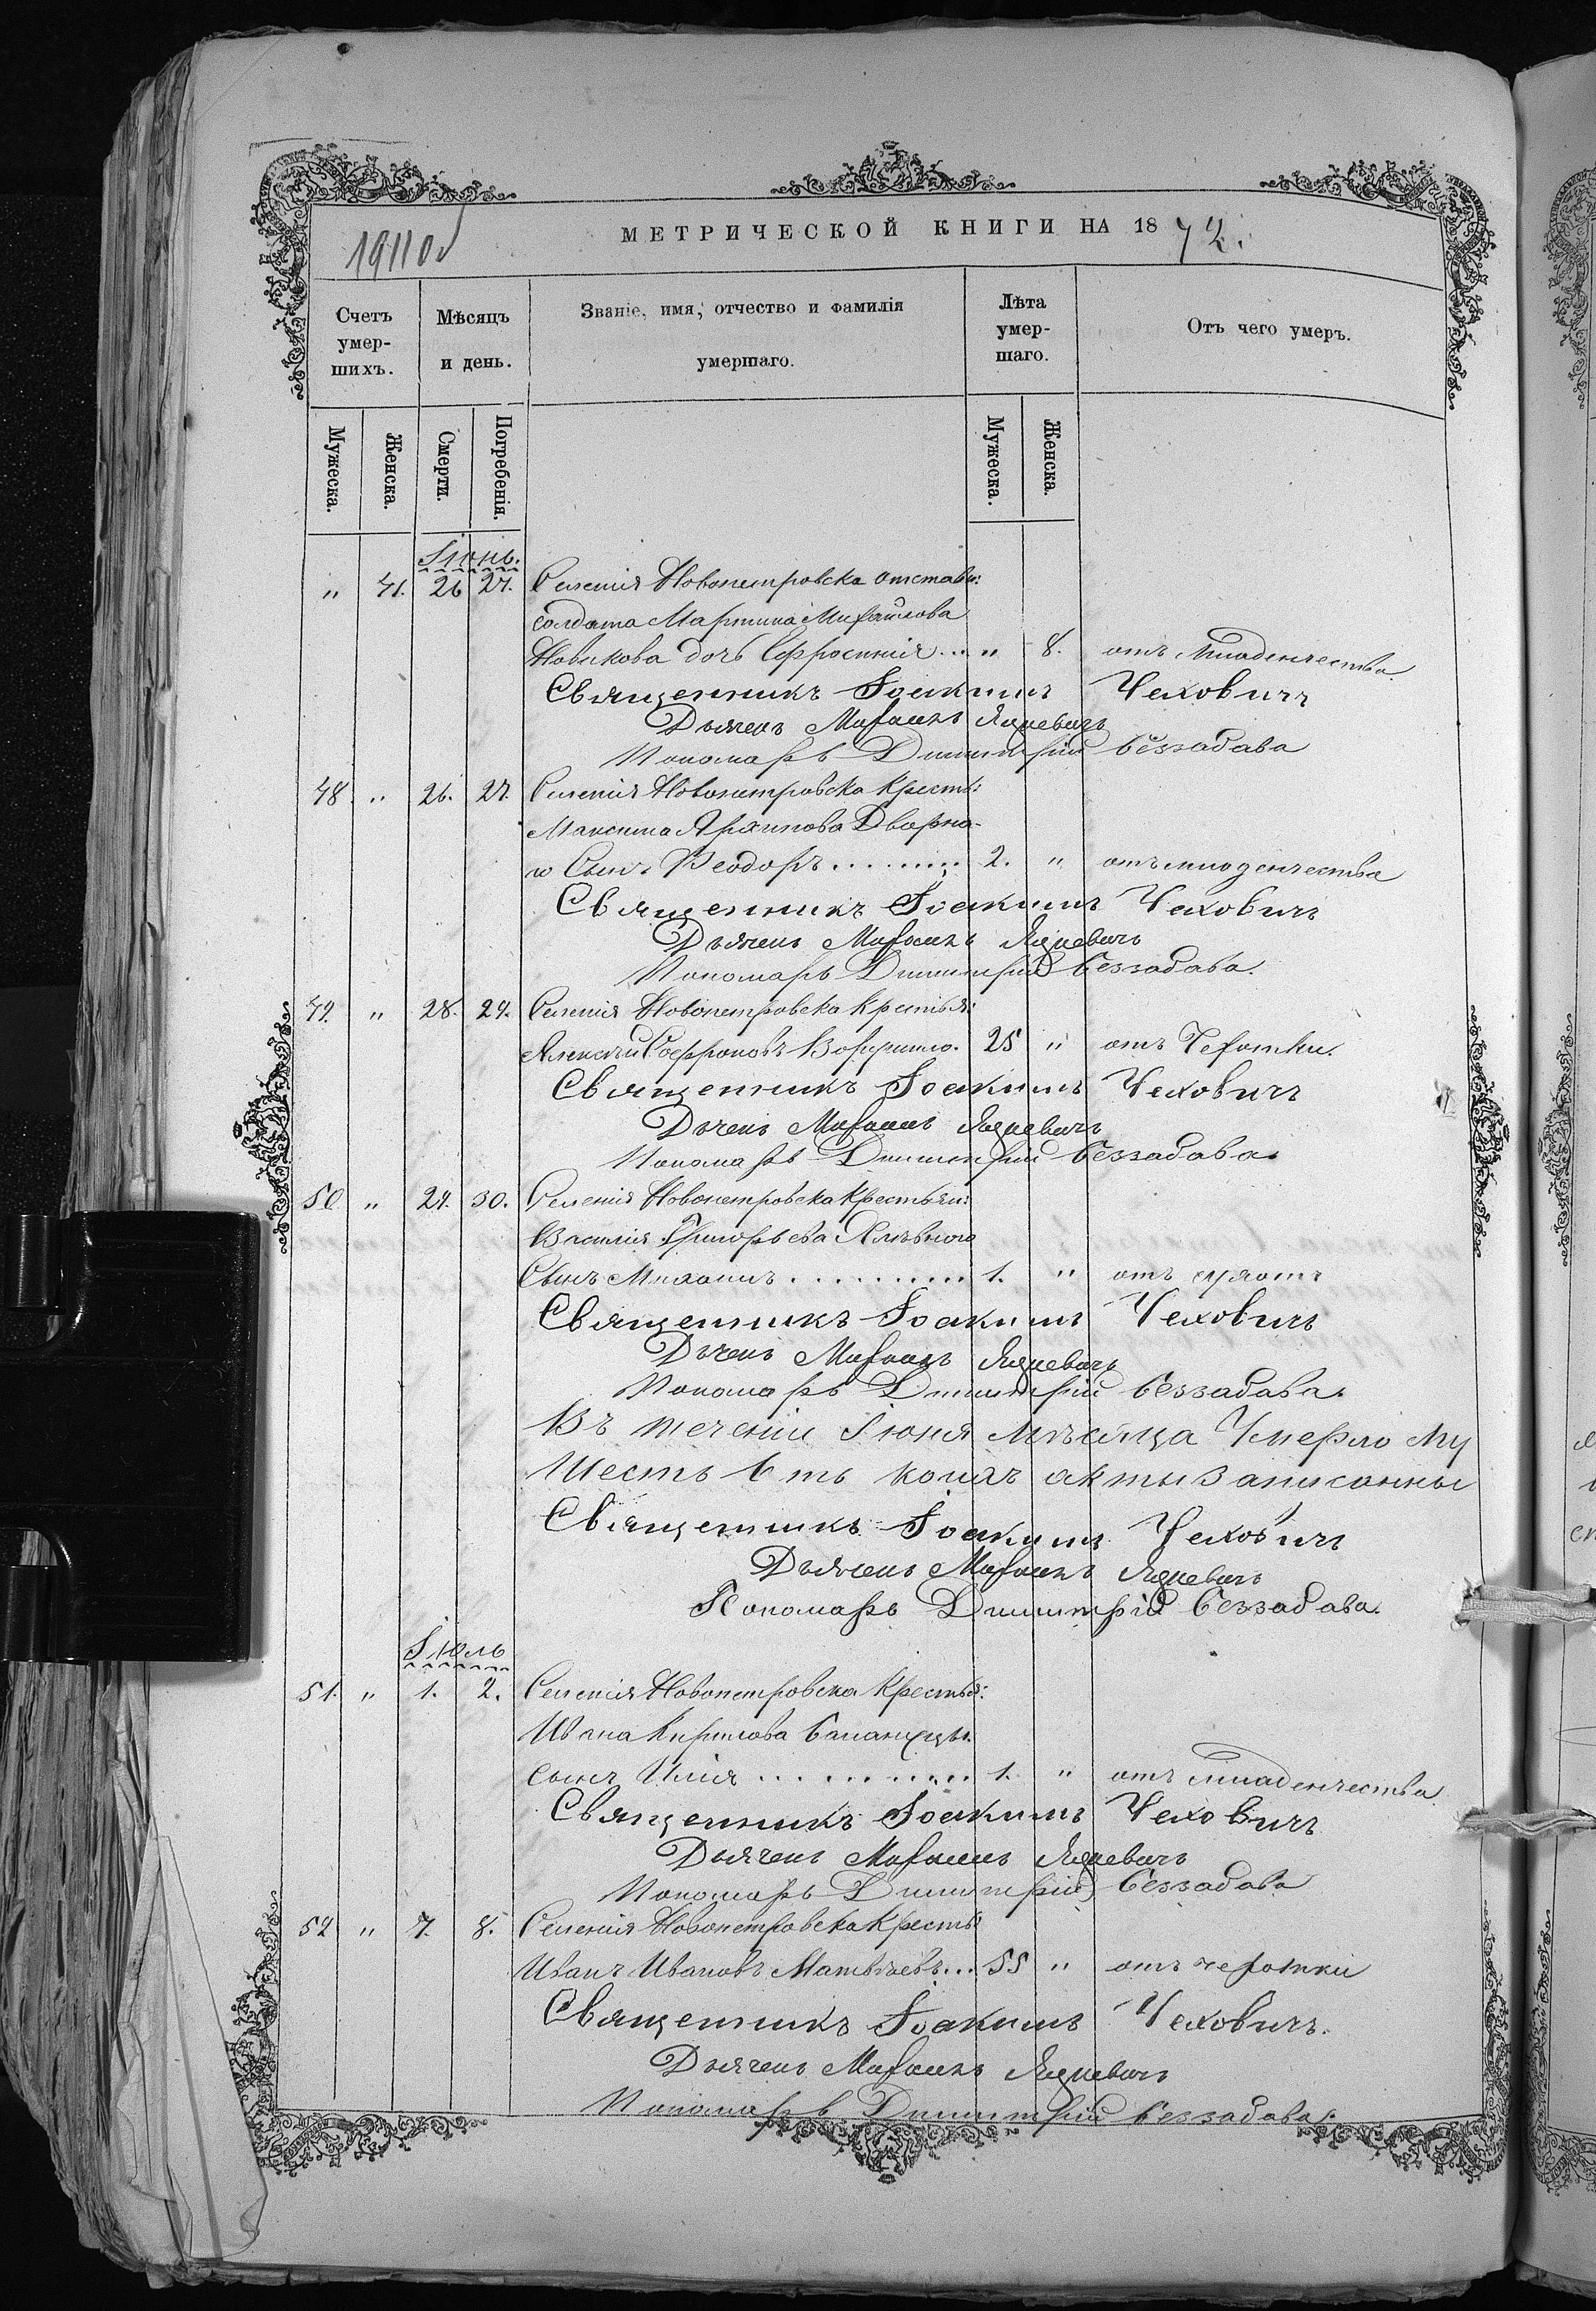 1911об
МЕТРИЧЕСКОЙ КНИГИ НА 1872.
Счетъ умер- шихъ.
Мѣсяцъ и день.
Званіе, имя, отчество и фамилія умершаго.
Лѣта умер- шаго.
Отъ чего умеръ.
Мужеска. Женска. Смерти. Погребенія. Мужеска. Женска.
Іюнь.
" 41. 26 27. Селенія Новопетровска отставн:
солдата Мартина Михайлова
Новикова дочь Ефросинія ... " 8. отъ младенчества
Священникъ Іоакимъ Чеховичъ
Дьячекъ Михаилъ Яцкевичъ
Пономарь Димитрій Беззабава
48 " 26. 27. Селенія Новопетровска Кресть:
Максима Архипова Дворна-
го Сынъ Ѳеодоръ ......... 2. " отъ младенчества
Священникъ Іоакимъ Чеховичъ
Дьячекъ Михаилъ Яцкевичъ
Пономарь Димитрій Беззабава.
49. " 28. 29. Селенія Новопетровска Крестья:
Алексѣй Софроновъ 25 " отъ Чахотки.
Священникъ Іоакимъ Чеховичъ
Дьячекъ Михаилъ Яцкевичъ
Пономарь Димитрій Беззабава.
50 " 29. 30. Селенія Новопетровска Крестьян:
Василія Григорьева
Сынъ Михаилъ .......... 1. " отъ
Священникъ Іоакимъ Чеховичъ
Дьячекъ Михаилъ Яцкевичъ
Пономарь Димитрій Беззабава.
Въ теченіи Іюня мѣсяца Умерло Му
Шесть 6 ть коихъ акты Записанны
Священникъ Іоакимъ Чеховичъ
Дьячекъ Михаилъ Яцкевичъ
Пономарь Димитрій Беззабава.
Іюль
51. " 1. 2. Селенія Новопетровска Крестья:
Ивана Кирилова
сынъ Илія ............ 1. " отъ младенчества
Священникъ Іоакимъ Чеховичъ
Дьячекъ Михаилъ Яцкевичъ
Пономарь Димитрій Беззабава
52 " 7. 8. Селенія Новопетровска Кресть:
Иванъ Ивановъ Матвѣевъ... 55 " отъ чахотки
Священникъ Іоакимъ Чеховичъ.
Дьячекъ Михаилъ Яцкевичъ
Пономарь Димитрій Беззабава.